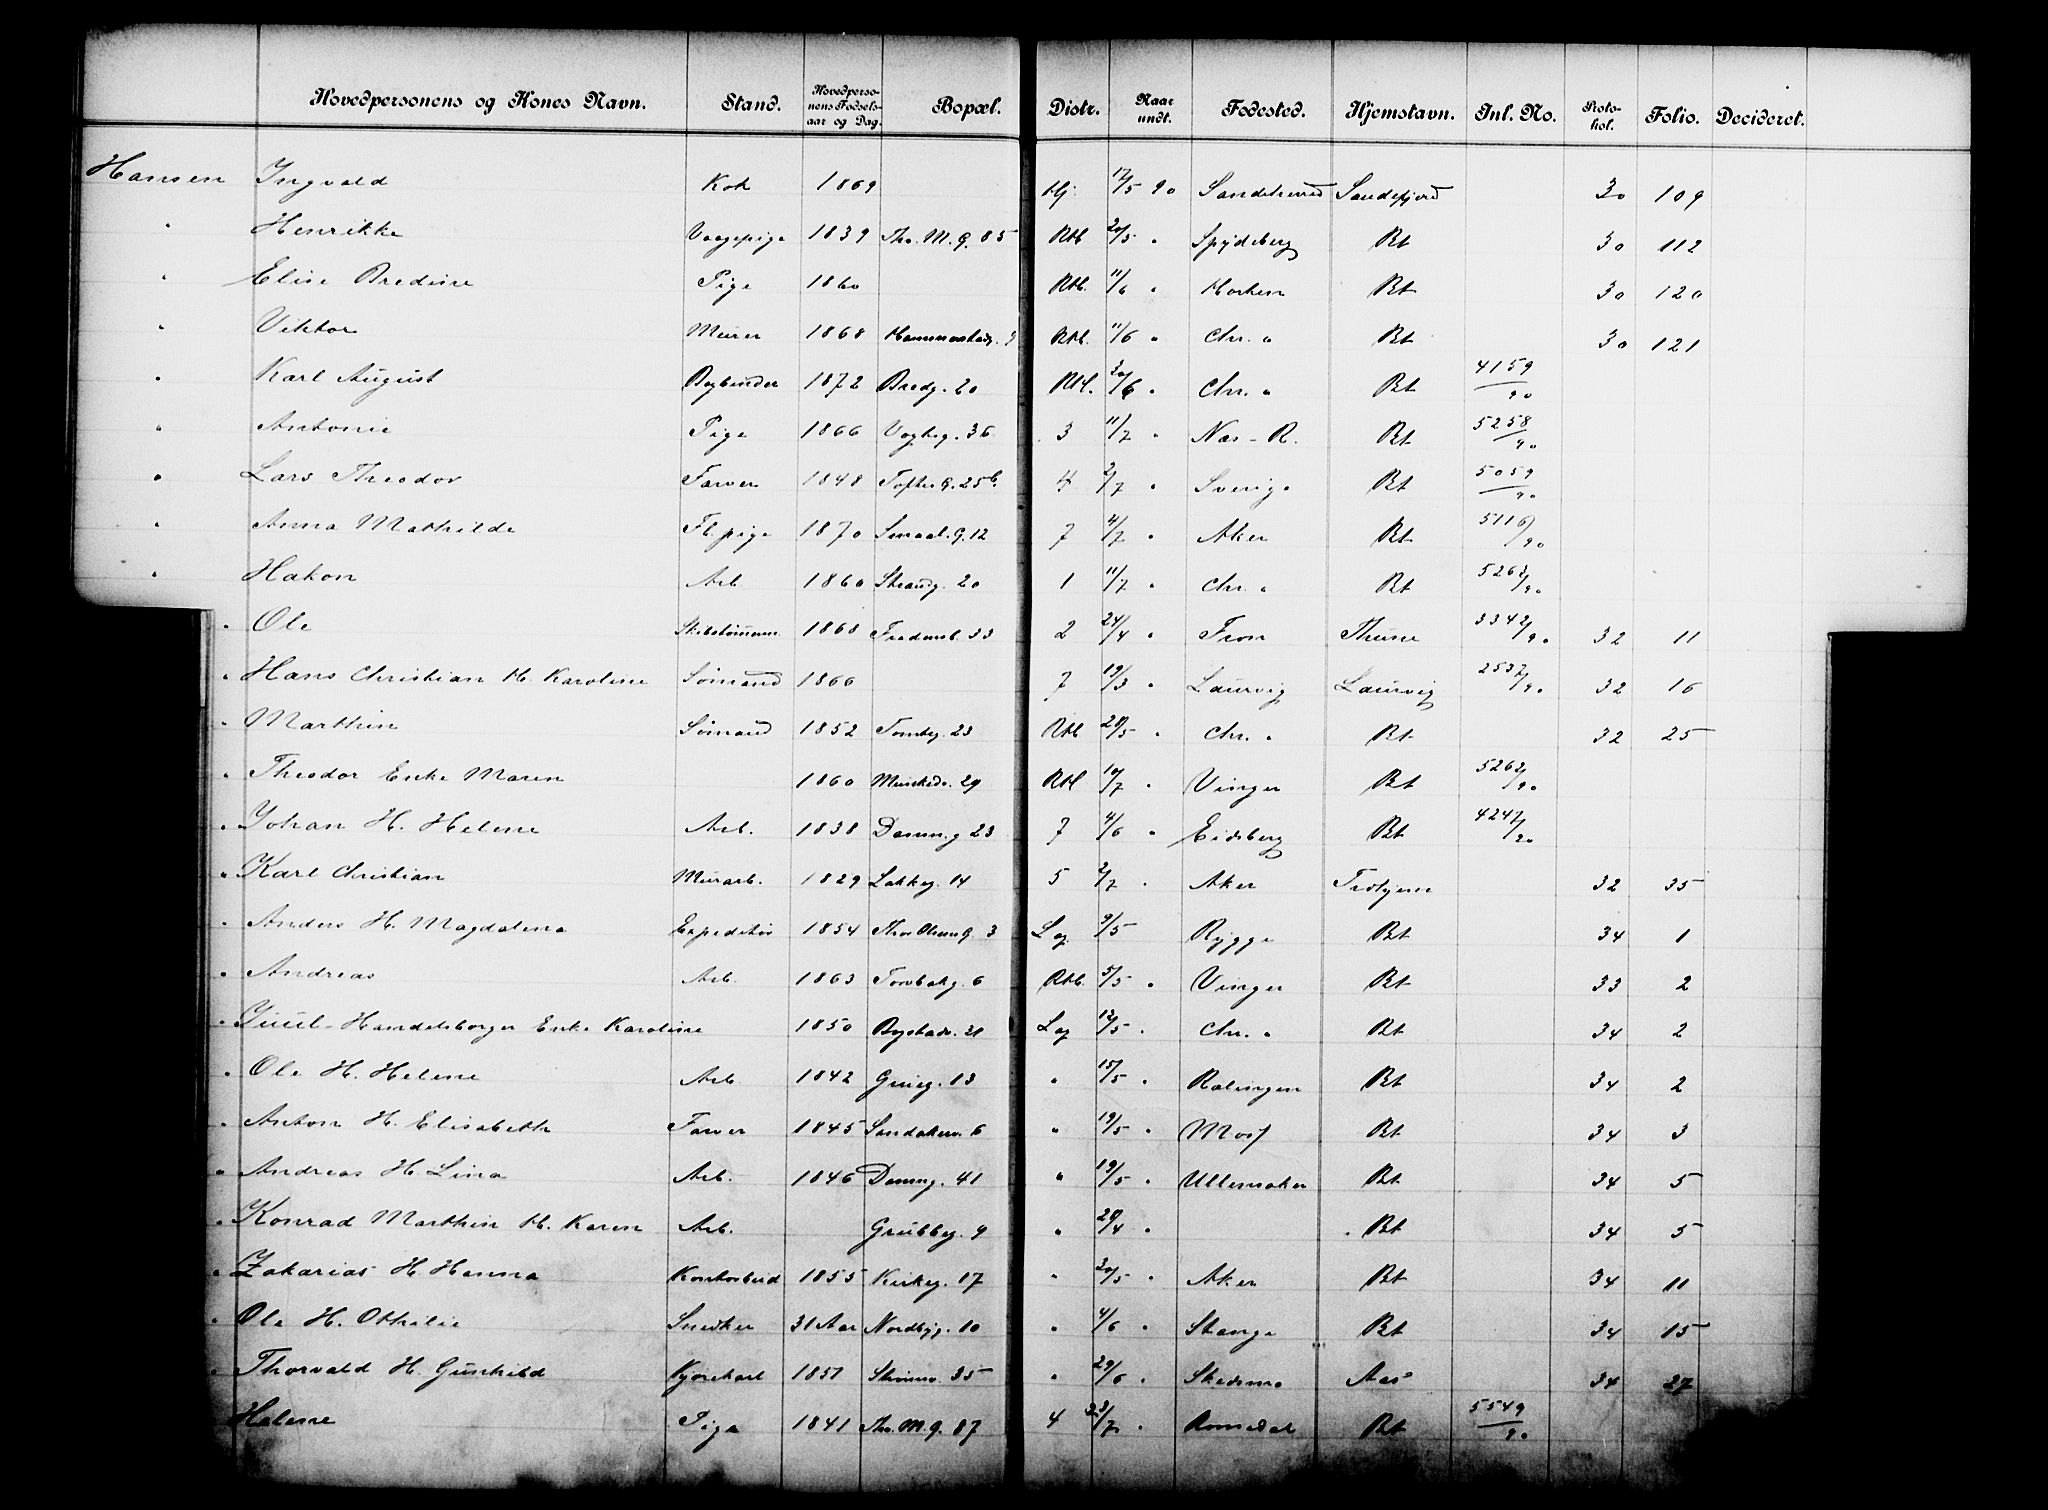 Hovedpersonens og Kones Navn. Stand. Hovedperso-nens Fødsels-aar og Dag. Bopæl. Distr. Naar undt. Fødested. Hjemstavn. Inl. No. Proto-kol. Folio. Decideret.
Hansen Ingvald Kok 1869 Hj. 17/5 90 Sandeherred Sandefjord 30 109
" Henrikke Vaagepige 1839 Thv. M. G. 85 Rtl 20/5 " Spydeberg Bt 30 112
" Elise Bredine Pige 1860 Rtl. 11/6 " Horten Bt 30 120
" Viktor Murer 1868 Rtl. 11/6 " Chr. a Bt 30 121
" Karl August Bogbinder 1872 Bredg. 20 Rtl. 20/6 " Chr. a Bt 4159/90
" Antonie Pige 1866 Vogtsg. 36 3 11/7 " Næs - R. Bt 5258/90
" Lars Theodor Farver 1848 Toftes G. 25b. 4 2/7 " Sverige Bt 5059/90
" Anna Mathilde Fb. pige 1870 Smaal. G. 12 7 4/7 " Aker Bt 5116/90
" Hakon Arb. 1860 Strandg. 20 1 11/7 " Chr. a Bt 5263/90
" Ole Skibstømmerm. 1868 Fredensb. 33 2 24/4 " Fron Thune 3342/90 32 11
" Hans Christian H. Karoline Sømand 1866 7 19/3 " Laurvig Laurvig 2537/90 32 16
" Marthin Sømand 1852 Tomteg. 23 Rtl 28/5 " Chr. a Bt 32 25
" Theodor Enke Maren 1860 Munkeds. 29 Rtl 10/7 " Vinger Bt 5262/90
" Johan H. Helene Arb. 1838 Dammg. 23 7 4/6 " Eidsberg Bt 4247/90
" Karl Christian Murarb. 1829 Lakkeg. 14 5 2/7 " Aker Trohjem 32 35
" Anders H. Magdalena Expeditør 1854 Thor Olsens G. 3 Log 9/5 Rygge Bt 34 1
" Andreas Arb. 1863 Torvbakg. 6 Rtl. 5/5 " Vinger Bt 33 2
" Juul-Handelsborger Enke Karoline 1850 Bogstadv. 21 Log 12/5 " Chr. a Bt 34 2
" Ole H. Helene Arb 1842 Grüneg. 13 " 15/5 " Rælingen Bt 34 2
" Anton H. Elisabeth Farver 1845 Sandakerv. 6 " 19/5 " Moss Bt 34 3
" Andreas H. Lina Arb. 1846 Dammg. 41 " 19/5 " Ullensaker Bt 34 5
" Konrad Marthin H. Karen Arb. Grübbeg. 9 " 28/4 " Bt 34 5
" Zakarias H. Hanna Kontorbud 1855 Kirkeg. 17 " 20/5 " Aker Bt 34 11
" Ole H. Othilie Snedker 31 Aar Nordbyg. 10 " 4/6 " Stange Bt 34 15
" Thorvald H. Gunhild Kjørekarl 1857 35 " 29/6 " Skedsmo Aas 34 27
Helene Pige 1841 Thv. M. G. 87 4 23/7 " Romsdal Bt 5549/90